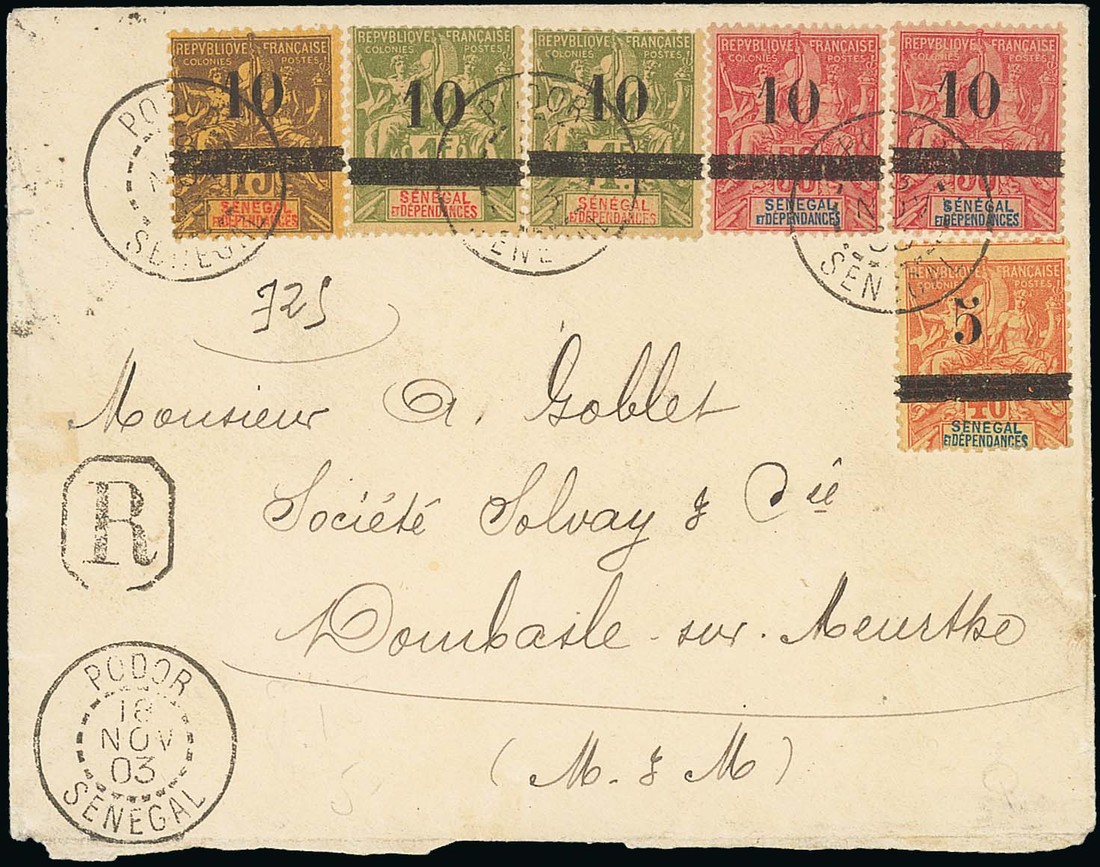 REPVBLIQVE FRANÇAISE
COLONIES POSTES
10
75
SÉNÉGAL
ET DÉPENDANCES
REPVBLIQVE FRANÇAISE
COLONIES POSTES
10
1F
SÉNÉGAL
ET DÉPENDANCES
REPVBLIQVE FRANÇAISE
COLONIES POSTES
10
1F
SÉNÉGAL
ET DÉPENDANCES
REPVBLIQVE FRANÇAISE
COLONIES POSTES
10
50
SÉNÉGAL
ET DÉPENDANCES
REPVBLIQVE FRANÇAISE
COLONIES POSTES
10
50
SÉNÉGAL
ET DÉPENDANCES
PODOR
SENEGAL
PODOR
SENEGAL
SENEGAL
REPVBLIQVE FRANÇAISE
COLONIES POSTES
5
40
SÉNÉGAL
ET DÉPENDANCES
725
Monsieur A. Goblet
R
Société Solvay & Cie
Dombasle-sur-Meurthe
(M. & M)
PODOR
18
NOV
03
SENEGAL